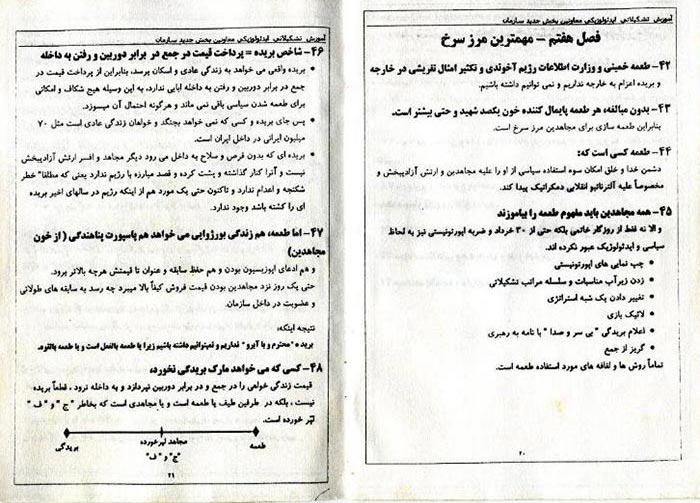 آموزش تشکیلاتی ایدئولوژیکی معاونین بخش جدید سازمان
فصل هفتم – مهمترین مرز سرخ
۴۲– طعمه خمینی و وزارت اطلاعات رژیم آخوندی و تکثیر امثال نفریشی در خارجه
و بریده اعزام به خارجه نداریم و نمی توانیم داشته باشیم.
۴۳– بدون مبالغه، هر طعمه پایمال کننده خون یکصد شهید و حتی بیشتر است.
بنابراین طعمه سازی برای مجاهدین مرز سرخ است.
۴۴– طعمه کسی است که:
دشمن خدا و خلق امکان سوء استفاده سیاسی از او را علیه مجاهدین و ارتش آزادیبخش و
مخصوصاً علیه آلترناتیو انقلابی دمکراتیک پیدا کند.
۴۵– همه مجاهدین باید مفهوم طعمه را بیاموزند
و الا نه فقط از روزگار خاتمی بلکه حتی از ۳۰ خرداد و ضربه اپورتونیستی نیز به لحاظ
سیاسی و ایدئولوژیک عبور نکرده اند.
• چپ نمایی های اپورتونیستی
• زدن زیرآب مناسبات و سلسله مراتب تشکیلاتی
• تغییر دادن یک شبه استراتژی
• لائیک بازی
• اعلام بریدگی " بی سر و صدا " با نامه به رهبری
• گریز از جمع
تماماً روش ها و لفافه های مورد استفاده طعمه است.
۲۰
آموزش تشکیلاتی ایدئولوژیکی معاونین بخش جدید سازمان
۴۶– شاخص بریده = پرداخت قیمت در جمع در برابر دوربین و رفتن به داخله
• بریده واقعی می خواهد به زندگی عادی و اسکان برسد، بنابراین از پرداخت قیمت در
جمع در برابر دوربین و رفتن به داخله ابایی ندارد، به این وسیله هیچ شکاف و امکانی
برای طعمه شدن سیاسی باقی نمی ماند و هرگونه احتمال آن میسوزد.
• پس جای بریده و کسی که نمی خواهد بجنگد و خواهان زندگی عادی است مثل ۷۰
میلیون ایرانی در داخل ایران است.
• بریده ای که بدون قرص و سلاح به داخل می رود دیگر مجاهد و افسر ارتش آزادیبخش
نیست و آنرا کنار گذاشته و پشت کرده و قصد مبارزه با رژیم ندارد یعنی که مطلقا" خطر
شکنجه و اعدام ندارد و تاکنون حتی یک مورد هم از اینکه رژیم در سالهای اخیر بریده
ای را کشته باشد وجود ندارد.
۴۷– اما طعمه، هم زندگی بورژوایی می خواهد هم پاسپورت پناهندگی ( از خون
مجاهدین)
و هم ادعای اپوزیسیون بودن و هم حفظ سابقه و عنوان تا قیمتش هرچه بالاتر برود.
حتی یک روز نزد مجاهدین بودن قیمت فروش کیفاً بالا میبرد چه رسد به سابقه های طولانی
و عضویت در داخل سازمان.
نتیجه اینکه:
بریده " محترم و با آبرو " نداریم و نمیتوانیم داشته باشیم زیرا یا طعمه بالفعل است و یا طعمه بالقوه.
۴۸– کسی که می خواهد مارک بریدگی نخورد،
قیمت زندگی خواهی را در جمع و در برابر دوربین نپردازد و به داخله نرود ، قطعاً بریده
نیست ، بلکه در طرفین طیف یا طعمه است و یا مجاهدی است که بخاطر "ج" و "ف"
لهر خورده است.
طعمه
مجاهد لهرخورده
"ج" و "ف"
بریدگی
۲۱